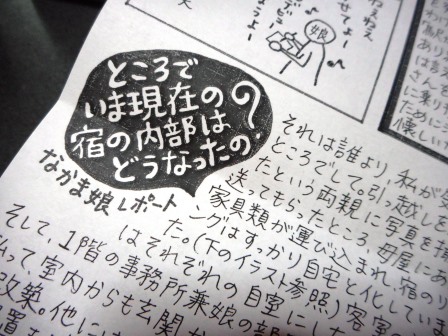 ところで
いま現在の
宿の内部は
どうなったの?
なかま娘レポート
娘
せてよー
それは誰より私が
ところでして。引っ越し
たという両親に写真を
送ってもらったところ、母屋に
家具類が運び込まれ、宿の
ングはすっかり自宅と化してい
た。(下のイラスト参照)客室
はそれぞれの自室に
そして、1階の事務所兼娘の部
払って室内からも玄関
改築。他に